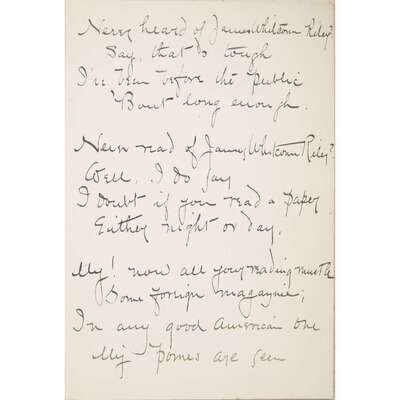 Never heard of James Whitcomb Riley?
Say, that is tough
I've been before the public
'Bout long enough.
Never read of James Whitcomb Riley?
Well, I do say
I doubt if you read a paper
Either night or day.
My! now all your reading must be
Some foreign magazine;
In any good American one
My pomes are seen